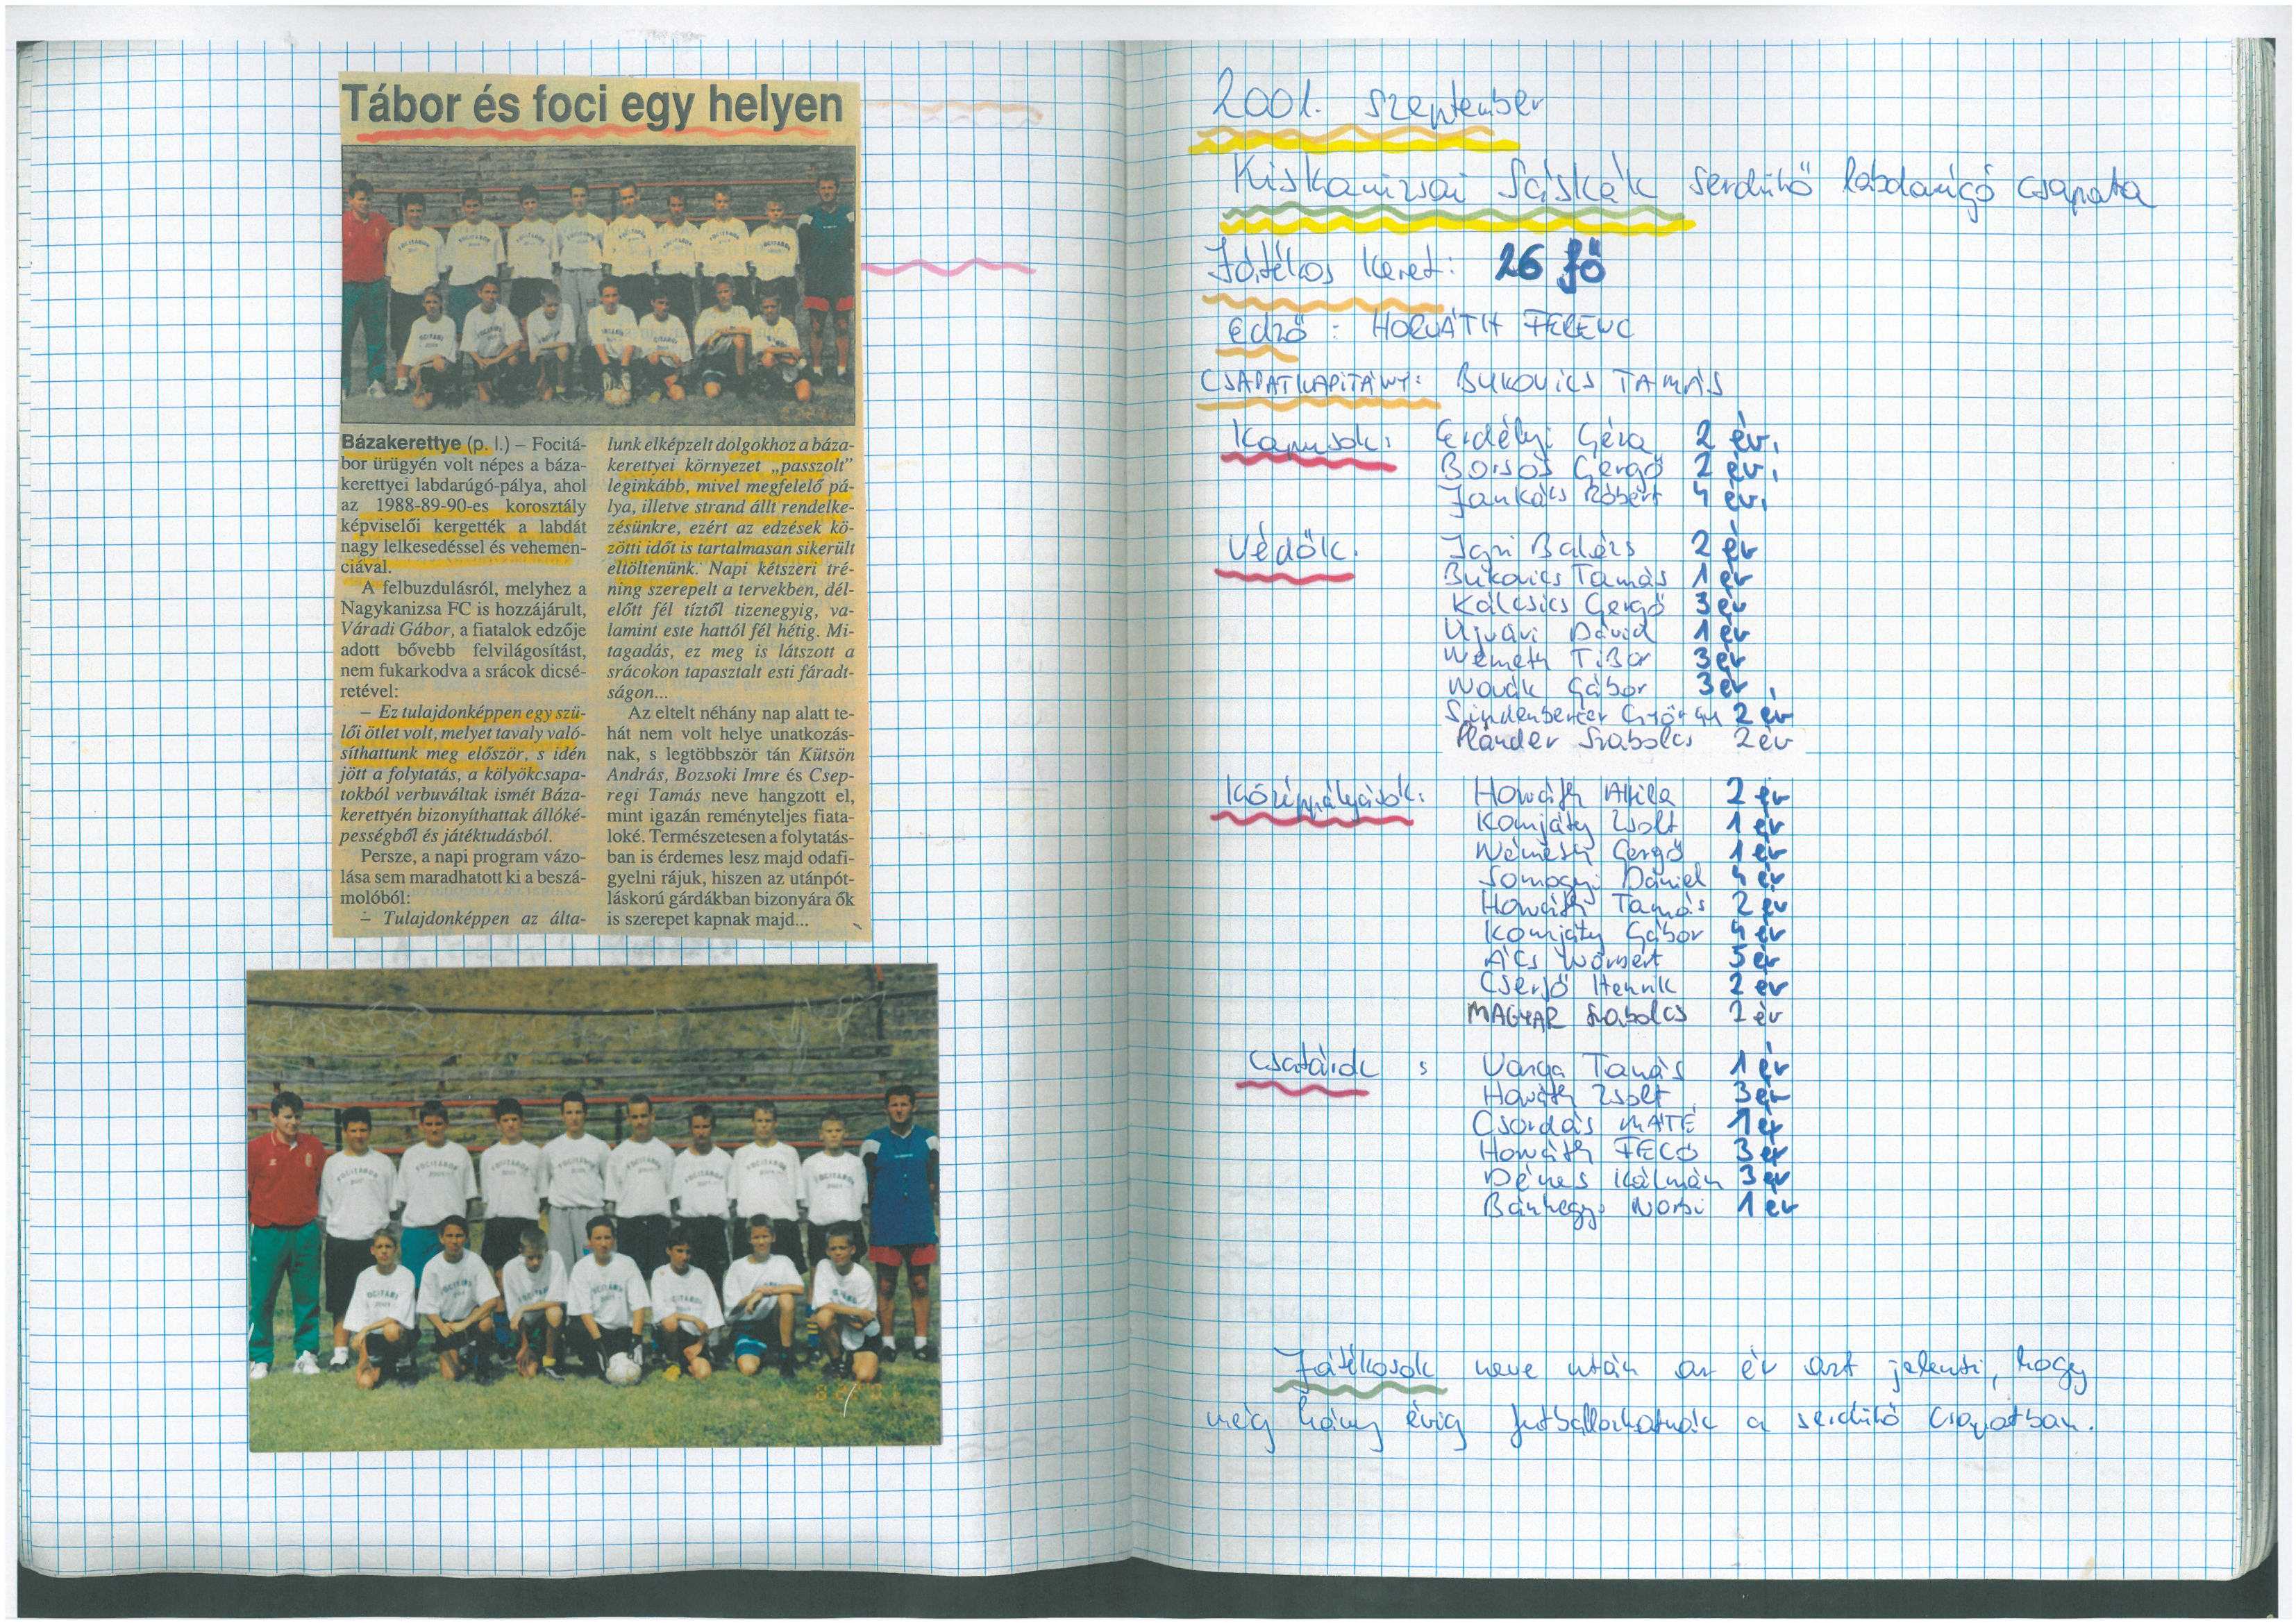 Tábor és foci egy helyen
Bázakerettye (p. l.) – Focitá-
bor ürügyén volt népes a báza-
kerettyei labdarúgó-pálya, ahol
az 1988-89-90-es korosztály
képviselői kergették a labdát
nagy lelkesedéssel és vehemen-
ciával.
A felbuzdulásról, melyhez a
Nagykanizsa FC is hozzájárult,
Váradi Gábor, a fiatalok edzője
adott bővebb felvilágosítást,
nem fukarkodva a srácok dicsé-
retével:
– Ez tulajdonképpen egy szü-
lői ötlet volt, melyet tavaly való-
síthattunk meg először, s idén
jött a folytatás, a kölyökcsapa-
tokból verbuváltak ismét Báza-
kerettyén bizonyíthattak állóké-
pességből és játéktudásból.
Persze, a napi program vázo-
lása sem maradhatott ki a beszá-
molóból:
– Tulajdonképpen az álta-
lunk elképzelt dolgokhoz a báza-
kerettyei környezet „passzolt”
leginkább, mivel megfelelő pá-
lya, illetve strand állt rendelke-
zésünkre, ezért az edzések kö-
zötti időt is tartalmasan sikerült
eltöltenünk. Napi kétszeri tré-
ning szerepelt a tervekben, dél-
előtt fél tíztől tizenegyig, va-
lamint este hattól fél hétig. Mi-
tagadás, ez meg is látszott a
srácokon tapasztalt esti fáradt-
ságon...
Az eltelt néhány nap alatt te-
hát nem volt helye unatkozás-
nak, s legtöbbször tán Kütsön
András, Bozsoki Imre és Csep-
regi Tamás neve hangzott el,
mint igazán reményteljes fiata-
loké. Természetesen a folytatás-
ban is érdemes lesz majd odafi-
gyelni rájuk, hiszen az utánpót-
láskorú gárdákban bizonyára ők
is szerepet kapnak majd...
2001. szeptember
Kiskanizsai Sáskák serdülő labdarúgó csapata
Játékos keret: 26 fő
edző: HORVÁTH FERENC
CSAPATKAPITÁNY: BUKOVICS TAMÁS
Kapusok: Erdélyi Géza 2 év.
Borsos Gergő 2 év.
Jankács Róbert 4 év.
Védők. Balázs 2 év
Bukovics Tamás 1 év
Kálcsics Gergő 3 év
Ujvári Dávid 1 év
Németh Tibor 3 év
Novák Gábor 3 év
György 2 év
Plander Szabolcs 2 év
Középpályások: Horváth Attila 2 év
Komjáty Zsolt 1 év
Németh Gergő 1 év
Somogyi Dániel 4 év
Horváth Tamás 2 év
Komjáty Gábor 4 év
Ács Norbert 3 év
Cserjő Henrik 2 év
MAGYAR Szabolcs 2 év
Csatárok: Varga Tamás 1 év
Horváth Zsolt 3 év
Csordás MÁTÉ 1 év
Horváth FECÓ 3 év
Dénes Kálmán 3 év
Bánhegyi Norbi 1 év
Játékosok neve után az év azt jelenti, hogy
még hány évig futballozhatnak a serdülő csapatban.